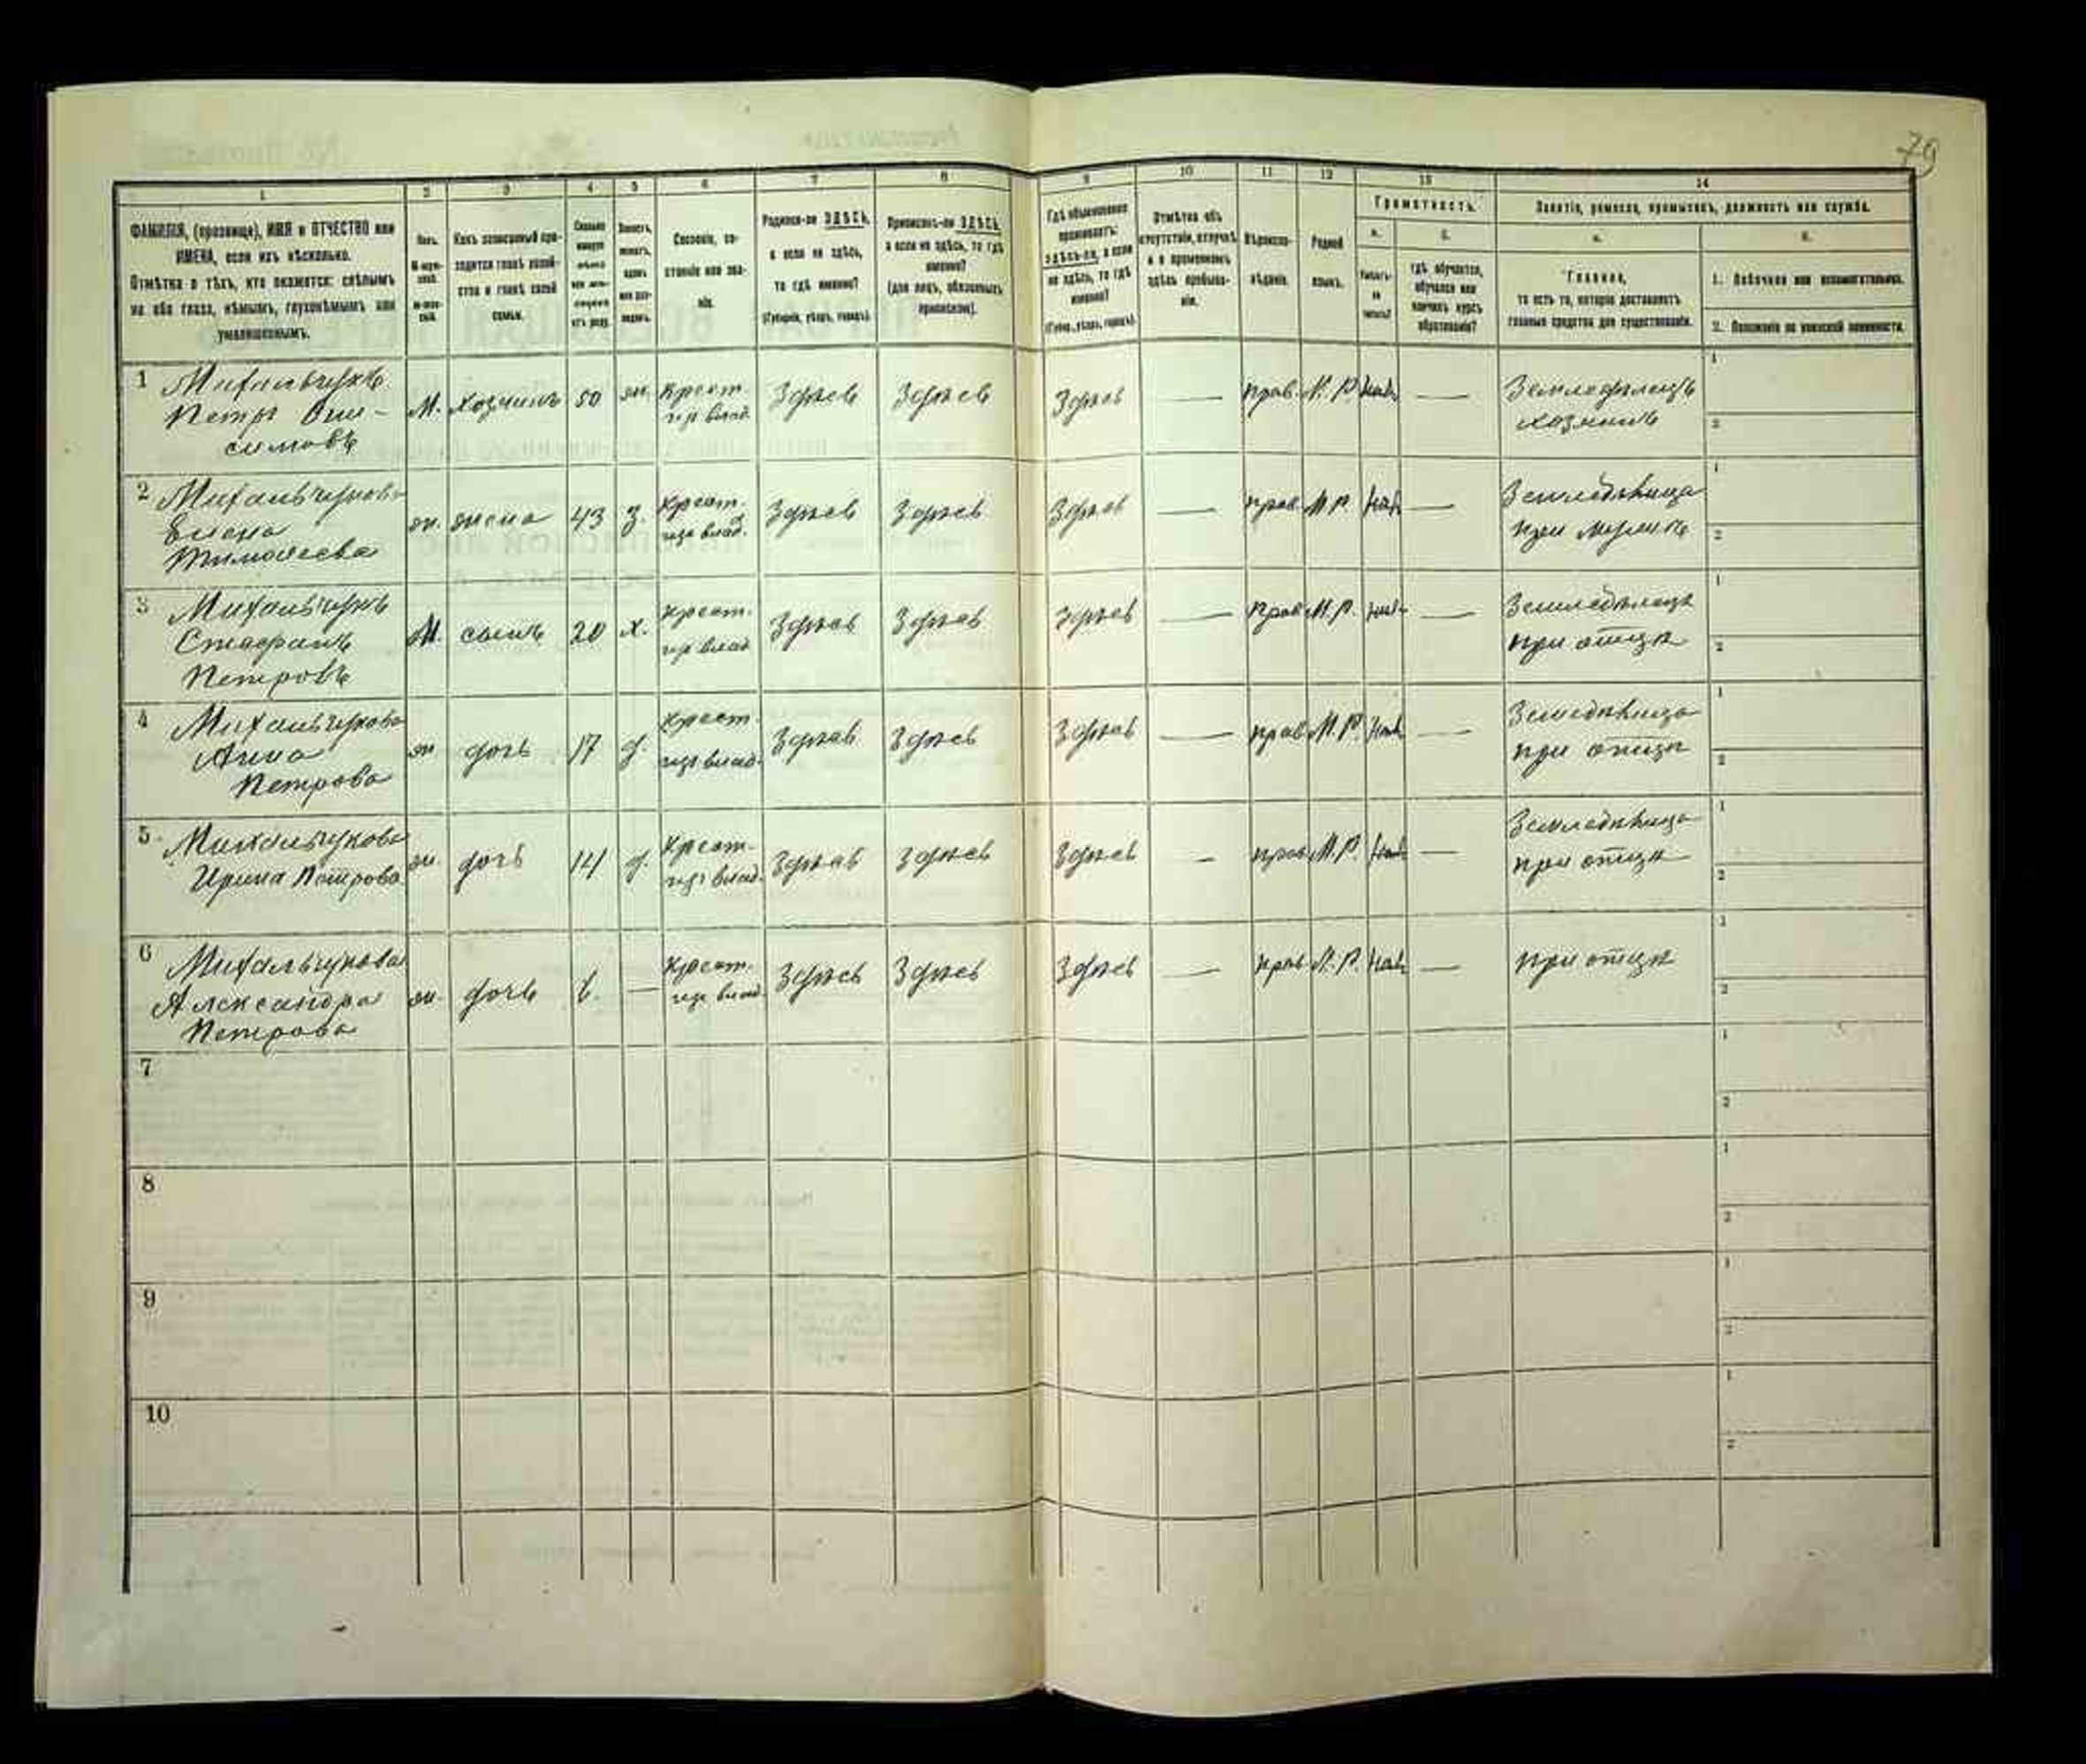 79
1 2 3 4 5 6 7 8 9 10 11 12 13 14
ФАМИЛІЯ, (прозвище), ИМЯ и ОТЧЕСТВО или
ИМЕНА, если ихъ нѣсколько.
Отмѣтка о тѣхъ, кто окажется: слѣпымъ
на оба глаза, нѣмымъ, глухонѣмымъ или
умалишеннымъ.
Полъ.
Какъ записанный при-
ходится главѣ хозяй-
ства и главѣ своей
семьи.
Сословіе, со-
стояніе или зва-
ніе.
Родился-ли ЗДѢСЬ,
а если не здѣсь,
то гдѣ именно?
(Губернія, уѣздъ, городъ).
Приписанъ-ли ЗДѢСЬ,
а если не здѣсь, то гдѣ
именно?
(для лицъ, обязанныхъ
припискою).
Гдѣ обыкновенно
проживаетъ:
здѣсь-ли, а если
не здѣсь, то гдѣ
именно?
(Губерн., уѣздъ, городъ).
Отмѣтка объ
отсутствіи, отлучкѣ
и о временномъ
здѣсь пребыва-
ніи.
Вѣроиспо-
вѣданіе.
Родной
языкъ.
Грамотность.
а. б.
Умѣетъ-
ли
читать?
гдѣ обучается,
обучался или
кончилъ курсъ
образованія?
Занятіе, ремесло, промыселъ, должность или служба.
а. б.
Главное,
то есть то, которое доставляетъ
главныя средства для существованія.
1. Побочное или вспомогательное.
2. Положеніе по воинской повинности.
1 Михальчукъ Петръ Они-симовъ М. хозяинъ 50 ж. Крест. Здѣсь Здѣсь Здѣсь — прав. М.Р. — Земледѣлецъ хозяинъ 1 2
2 Михальчукова Елена Тимофеева ж. жена 43 з. Крест. Здѣсь Здѣсь Здѣсь — прав. М.Р. — Земледѣлица при мужѣ 1 2
3 Михальчукъ Стефанъ Петровъ М. сынъ 20 х. Крест. Здѣсь Здѣсь Здѣсь — прав. М.Р. — Земледѣлецъ при отцѣ 1 2
4 Михальчукова Анна Петрова ж. дочь 17 д. Крест. Здѣсь Здѣсь Здѣсь — прав. М.Р. — Земледѣлица при отцѣ 1 2
5 Михальчукова Ирина Петрова ж. дочь 14 д. Крест. Здѣсь Здѣсь Здѣсь — прав. М.Р. — Земледѣлица при отцѣ 1 2
6 Михальчукова Александра Петрова ж. дочь 6 — Крест. Здѣсь Здѣсь Здѣсь — прав. М.Р. — при отцѣ 1 2
7 1 2
8 1 2
9 1 2
10 1 2